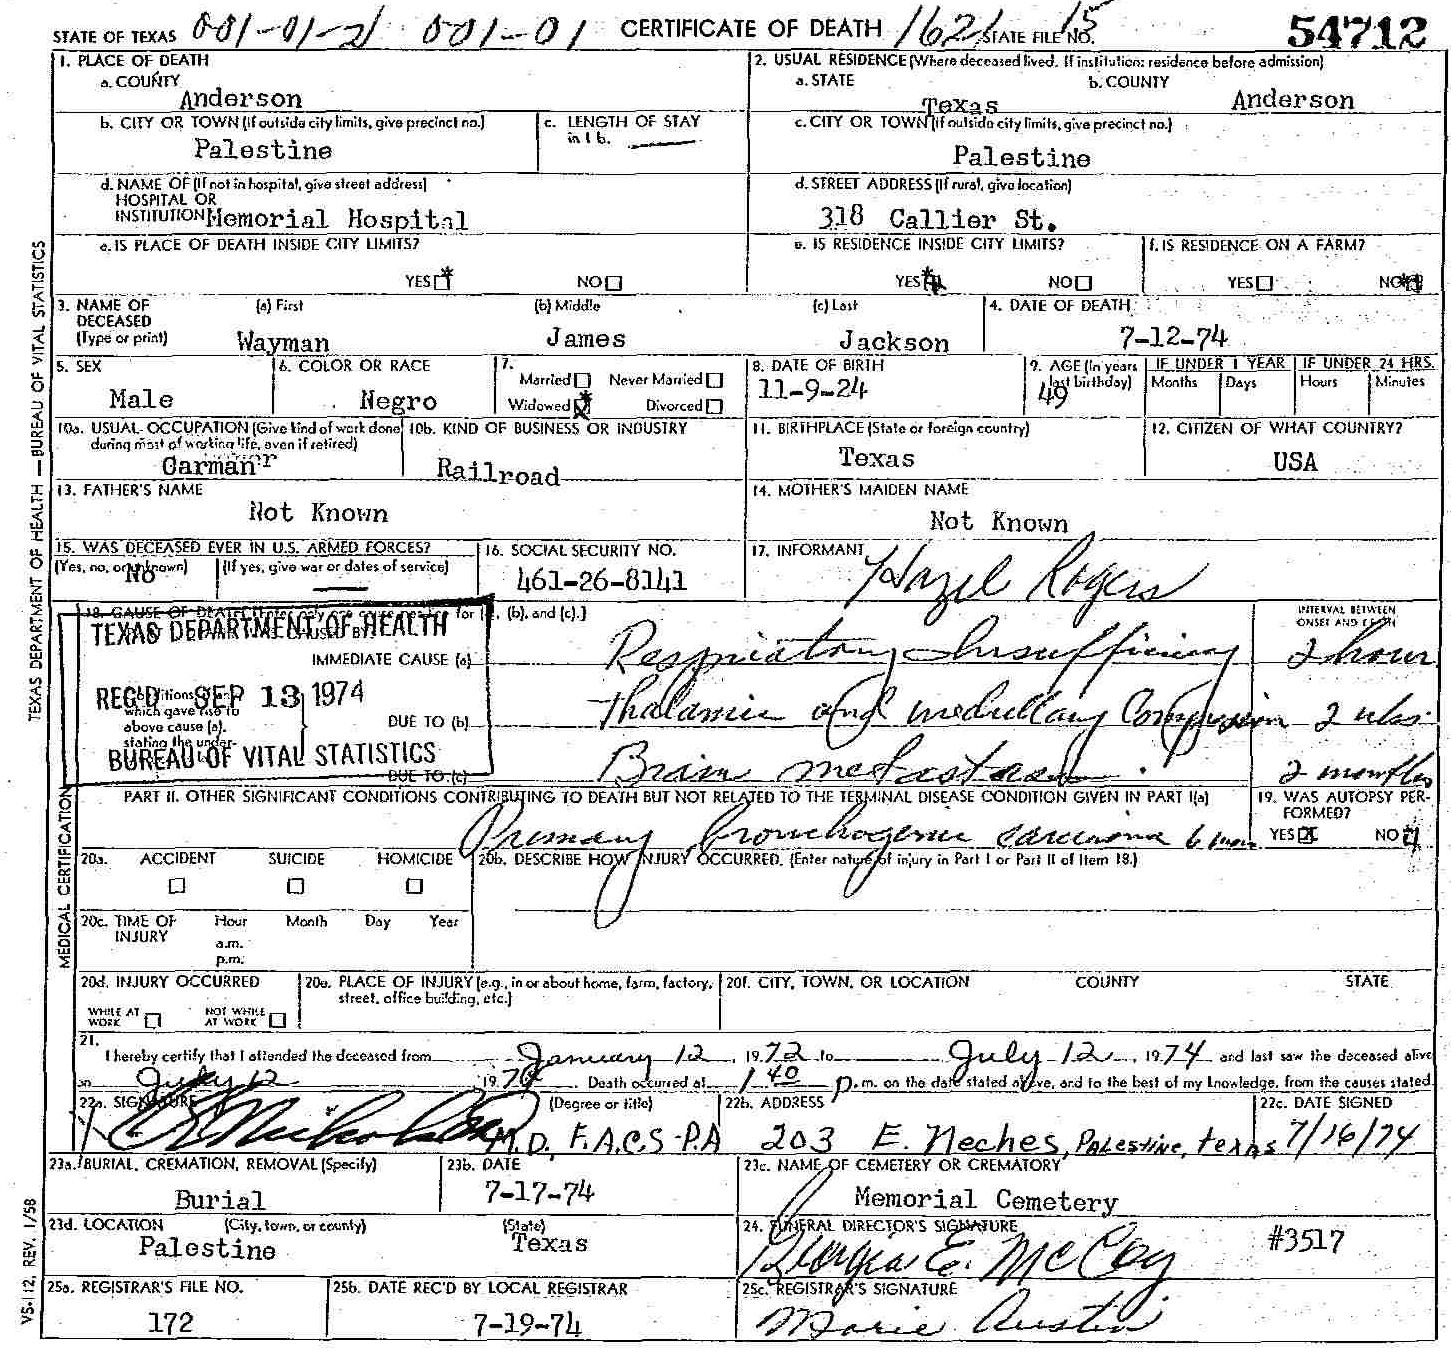 STATE OF TEXAS 001-01-21 001-01 CERTIFICATE OF DEATH 1621 STATE FILE NO. 15 54712
1. PLACE OF DEATH
a. COUNTY
Anderson
2. USUAL RESIDENCE (Where deceased lived. If institution: residence before admission)
a. STATE b. COUNTY
Texas Anderson
b. CITY OR TOWN (If outside city limits, give precinct no.)
Palestine
c. LENGTH OF STAY
in 1b.
c. CITY OR TOWN (If outside city limits, give precinct no.)
Palestine
d. NAME OF (If not in hospital, give street address)
HOSPITAL OR
INSTITUTION Memorial Hospital
d. STREET ADDRESS (If rural, give location)
318 Callier St.
e. IS PLACE OF DEATH INSIDE CITY LIMITS?
YES NO
e. IS RESIDENCE INSIDE CITY LIMITS?
YES NO
f. IS RESIDENCE ON A FARM?
YES NO
3. NAME OF
DECEASED
(Type or print)
(a) First (b) Middle (c) Last
Wayman James Jackson
4. DATE OF DEATH
7-12-74
5. SEX
Male
6. COLOR OR RACE
Negro
7.
Married Never Married
Widowed Divorced
8. DATE OF BIRTH
11-9-24
9. AGE (In years
last birthday)
49
IF UNDER 1 YEAR
Months Days
IF UNDER 24 HRS.
Hours Minutes
10a. USUAL OCCUPATION (Give kind of work done
during most of working life, even if retired)
Carman
10b. KIND OF BUSINESS OR INDUSTRY
Railroad
11. BIRTHPLACE (State or foreign country)
Texas
12. CITIZEN OF WHAT COUNTRY?
USA
13. FATHER'S NAME
Not Known
14. MOTHER'S MAIDEN NAME
Not Known
15. WAS DECEASED EVER IN U.S. ARMED FORCES?
(Yes, no, or unknown) (If yes, give war or dates of service)
No
16. SOCIAL SECURITY NO.
461-26-8141
17. INFORMANT
Hazel Rogers
18. CAUSE OF DEATH (Enter only one cause per line for (a), (b), and (c).)
INTERVAL BETWEEN
ONSET AND DEATH
TEXAS DEPARTMENT OF HEALTH
REC'D SEP 13 1974
BUREAU OF VITAL STATISTICS
IMMEDIATE CAUSE (a) Respiatory Insufficiency 2 hour
Conditions
which gave rise to
above cause (a),
stating the under-
DUE TO (b) Thalamic and medullary Compression 2 wks.
DUE TO (c) Brain metastases 2 months
PART II. OTHER SIGNIFICANT CONDITIONS CONTRIBUTING TO DEATH BUT NOT RELATED TO THE TERMINAL DISEASE CONDITION GIVEN IN PART I(a)
Primary bronchogenic carcinoma 6 mos
19. WAS AUTOPSY PER-
FORMED?
YES NO
20a. ACCIDENT SUICIDE HOMICIDE
20b. DESCRIBE HOW INJURY OCCURRED. (Enter nature of injury in Part I or Part II of Item 18.)
20c. TIME OF
INJURY
Hour Month Day Year
a.m.
p.m.
20d. INJURY OCCURRED
WHILE AT
WORK
NOT WHILE
AT WORK
20e. PLACE OF INJURY (e.g., in or about home, farm, factory,
street, office building, etc.)
20f. CITY, TOWN, OR LOCATION COUNTY STATE
21.
I hereby certify that I attended the deceased from January 12, 1972 to July 12, 1974 and last saw the deceased alive
on July 12 1974. Death occurred at 1 40 p.m. on the date stated above, and to the best of my knowledge, from the causes stated.
22a. SIGNATURE (Degree or title)
M.D. F.A.C.S-P.A
22b. ADDRESS
203 E. Neches, Palestine, Texas
22c. DATE SIGNED
7/16/74
23a. BURIAL, CREMATION, REMOVAL (Specify)
Burial
23b. DATE
7-17-74
23c. NAME OF CEMETERY OR CREMATORY
Memorial Cemetery
23d. LOCATION (City, town, or county) (State)
Palestine Texas
24. FUNERAL DIRECTOR'S SIGNATURE
Georgia E. McCoy #3517
25a. REGISTRAR'S FILE NO.
172
25b. DATE REC'D BY LOCAL REGISTRAR
7-19-74
25c. REGISTRAR'S SIGNATURE
Marie Austin
TEXAS DEPARTMENT OF HEALTH — BUREAU OF VITAL STATISTICS
MEDICAL CERTIFICATION
VS-112, REV. 1/58